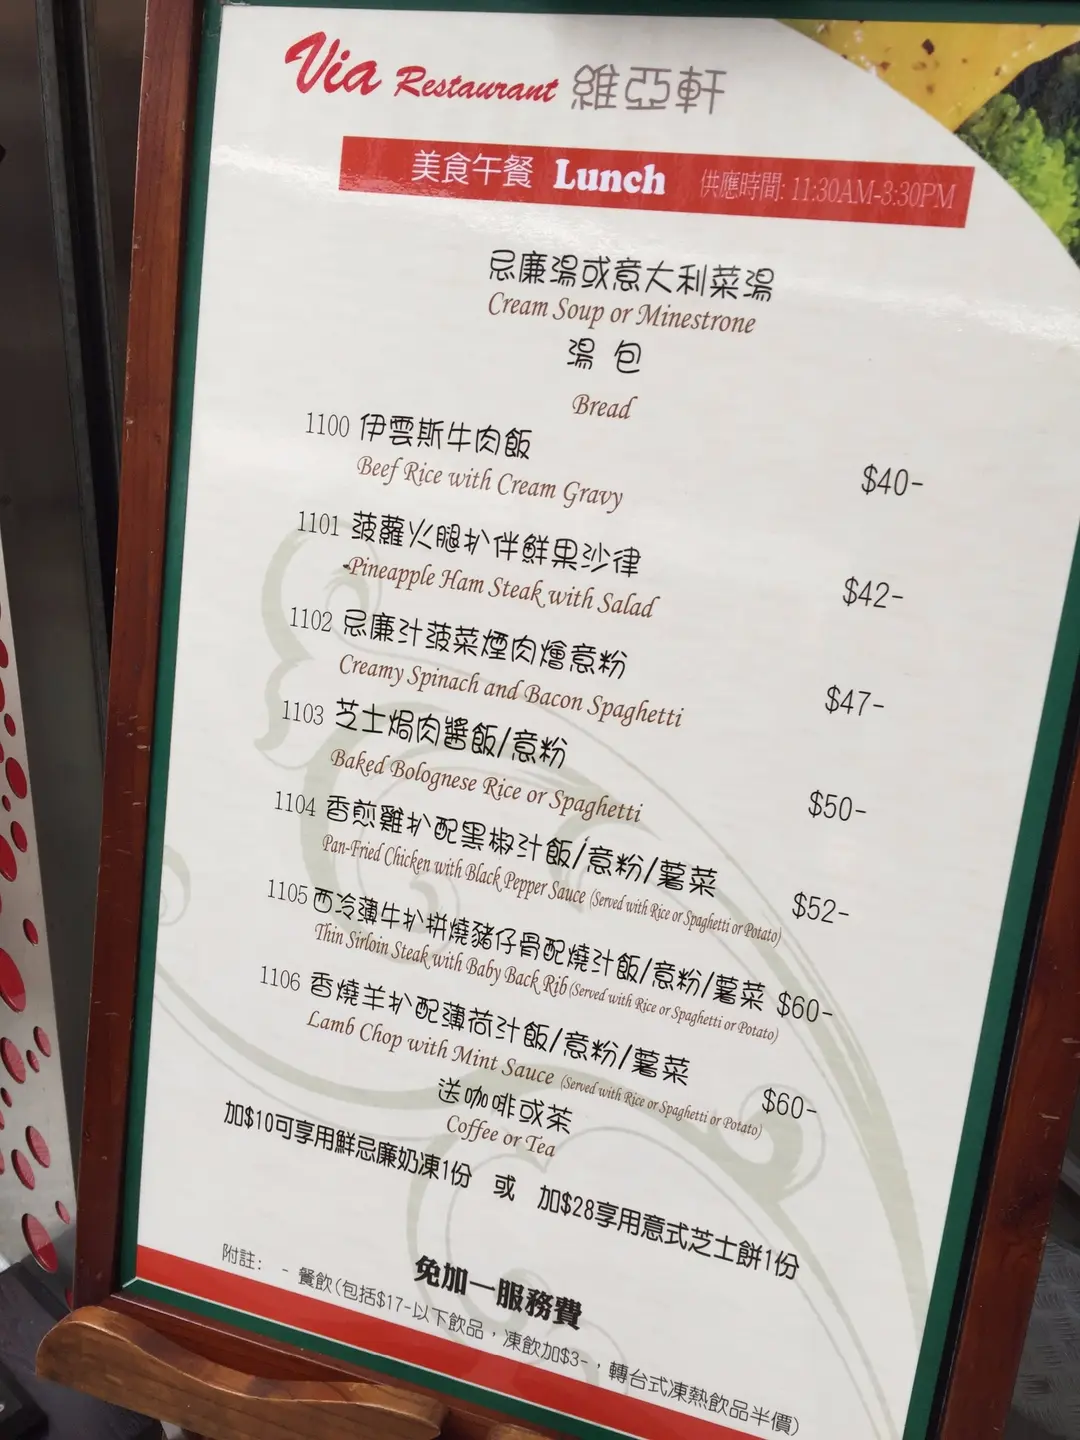 Via Restaurant 維亞軒
美食午餐 Lunch 供應時間: 11:30AM-3:30PM
忌廉湯或意大利菜湯
Cream Soup or Minestrone
湯 包
Bread
1100 伊雲斯牛肉飯 $40-
Beef Rice with Cream Gravy
1101 菠蘿火腿扒伴鮮果沙律 $42-
Pineapple Ham Steak with Salad
1102 忌廉汁菠菜煙肉燴意粉 $47-
Creamy Spinach and Bacon Spaghetti
1103 芝士焗肉醬飯/意粉 $50-
Baked Bolognese Rice or Spaghetti
1104 香煎雞扒配黑椒汁飯/意粉/薯菜 $52-
Pan-Fried Chicken with Black Pepper Sauce (Served with Rice or Spaghetti or Potato)
1105 西冷薄牛扒拼燒豬仔骨配燒汁飯/意粉/薯菜 $60-
Thin Sirloin Steak with Baby Back Rib (Served with Rice or Spaghetti or Potato)
1106 香燒羊扒配薄荷汁飯/意粉/薯菜 $60-
Lamb Chop with Mint Sauce (Served with Rice or Spaghetti or Potato)
送咖啡或茶
Coffee or Tea
加$10可享用鮮忌廉奶凍1份 或 加$28享用意式芝士餅1份
免加一服務費
附註: - 餐飲(包括$17-以下飲品，凍飲加$3-，轉台式凍熱飲品半價)